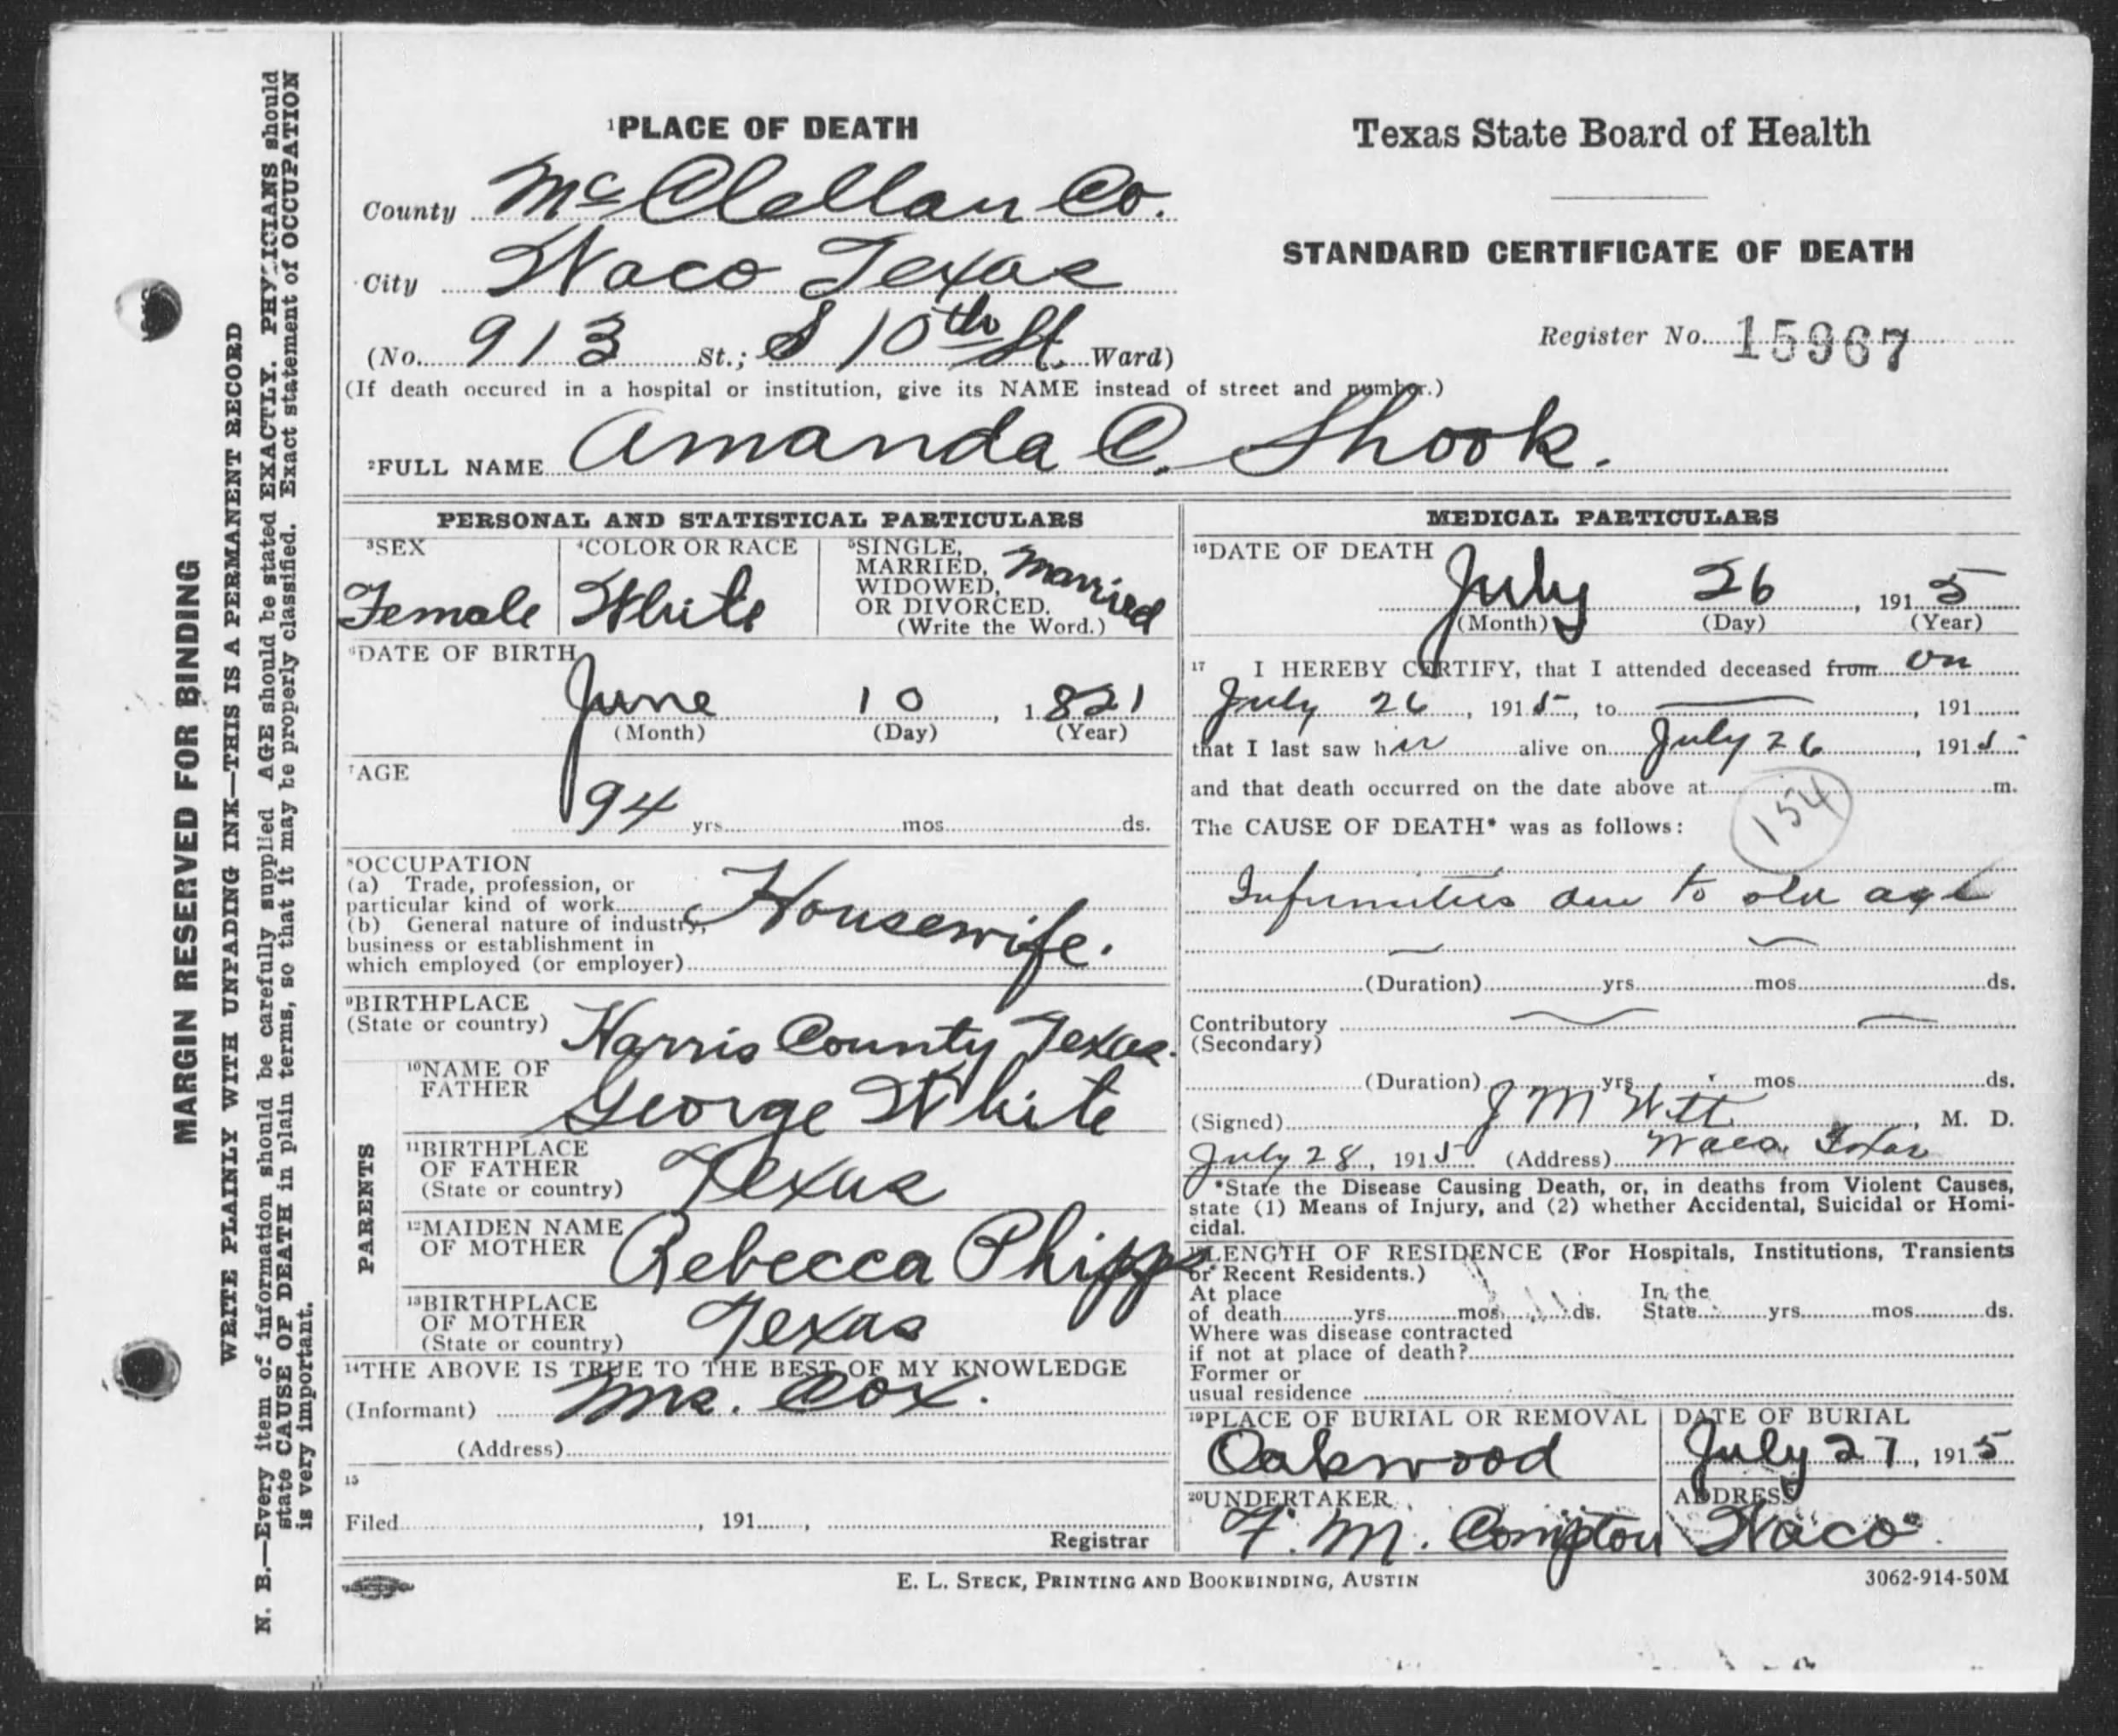 MARGIN RESERVED FOR BINDING
WRITE PLAINLY WITH UNFADING INK—THIS IS A PERMANENT RECORD
N. B.—Every item of information should be carefully supplied AGE should be stated EXACTLY. PHYSICIANS should
state CAUSE OF DEATH in plain terms, so that it may be properly classified. Exact statement of OCCUPATION
is very important.
1PLACE OF DEATH
County McClellan Co.
City Waco Texas
(No. 913 St.; S 10th St. Ward)
(If death occured in a hospital or institution, give its NAME instead of street and number.)
Texas State Board of Health
STANDARD CERTIFICATE OF DEATH
Register No. 15967
2FULL NAME Amanda C. Shook.
PERSONAL AND STATISTICAL PARTICULARS
3SEX
Female
4COLOR OR RACE
White
5SINGLE,
MARRIED,
WIDOWED,
OR DIVORCED.
(Write the Word.)
Married
6DATE OF BIRTH
June 10, 1821
(Month) (Day) (Year)
7AGE
94 yrs. mos. ds.
8OCCUPATION
(a) Trade, profession, or
particular kind of work
(b) General nature of industry,
business or establishment in
which employed (or employer)
Housewife.
9BIRTHPLACE
(State or country)
Harris County Texas.
PARENTS
10NAME OF
FATHER
George White
11BIRTHPLACE
OF FATHER
(State or country)
Texas
12MAIDEN NAME
OF MOTHER
Rebecca Phipps
13BIRTHPLACE
OF MOTHER
(State or country)
Texas
14THE ABOVE IS TRUE TO THE BEST OF MY KNOWLEDGE
(Informant) Mrs. Cox.
(Address)
15
Filed , 191 ,
Registrar
MEDICAL PARTICULARS
16DATE OF DEATH
July 26, 1915
(Month) (Day) (Year)
17 I HEREBY CERTIFY, that I attended deceased from on
July 26, 1915, to , 191
that I last saw her alive on July 26, 1915
and that death occurred on the date above at m.
154
The CAUSE OF DEATH* was as follows:
Infirmities due to old age
(Duration) yrs. mos. ds.
Contributory
(Secondary)
(Duration) yrs. mos. ds.
(Signed) J M Witt, M. D.
July 28, 1915 (Address) Waco Texas
*State the Disease Causing Death, or, in deaths from Violent Causes,
state (1) Means of Injury, and (2) whether Accidental, Suicidal or Homi-
cidal.
LENGTH OF RESIDENCE (For Hospitals, Institutions, Transients
or Recent Residents.)
At place
of death yrs. mos. ds.
In the
State yrs. mos. ds.
Where was disease contracted
if not at place of death?
Former or
usual residence
19PLACE OF BURIAL OR REMOVAL
Oakwood
DATE OF BURIAL
July 27, 1915
20UNDERTAKER
F. M. Compton
ADDRESS
Waco
E. L. STECK, PRINTING AND BOOKBINDING, AUSTIN
3062-914-50M